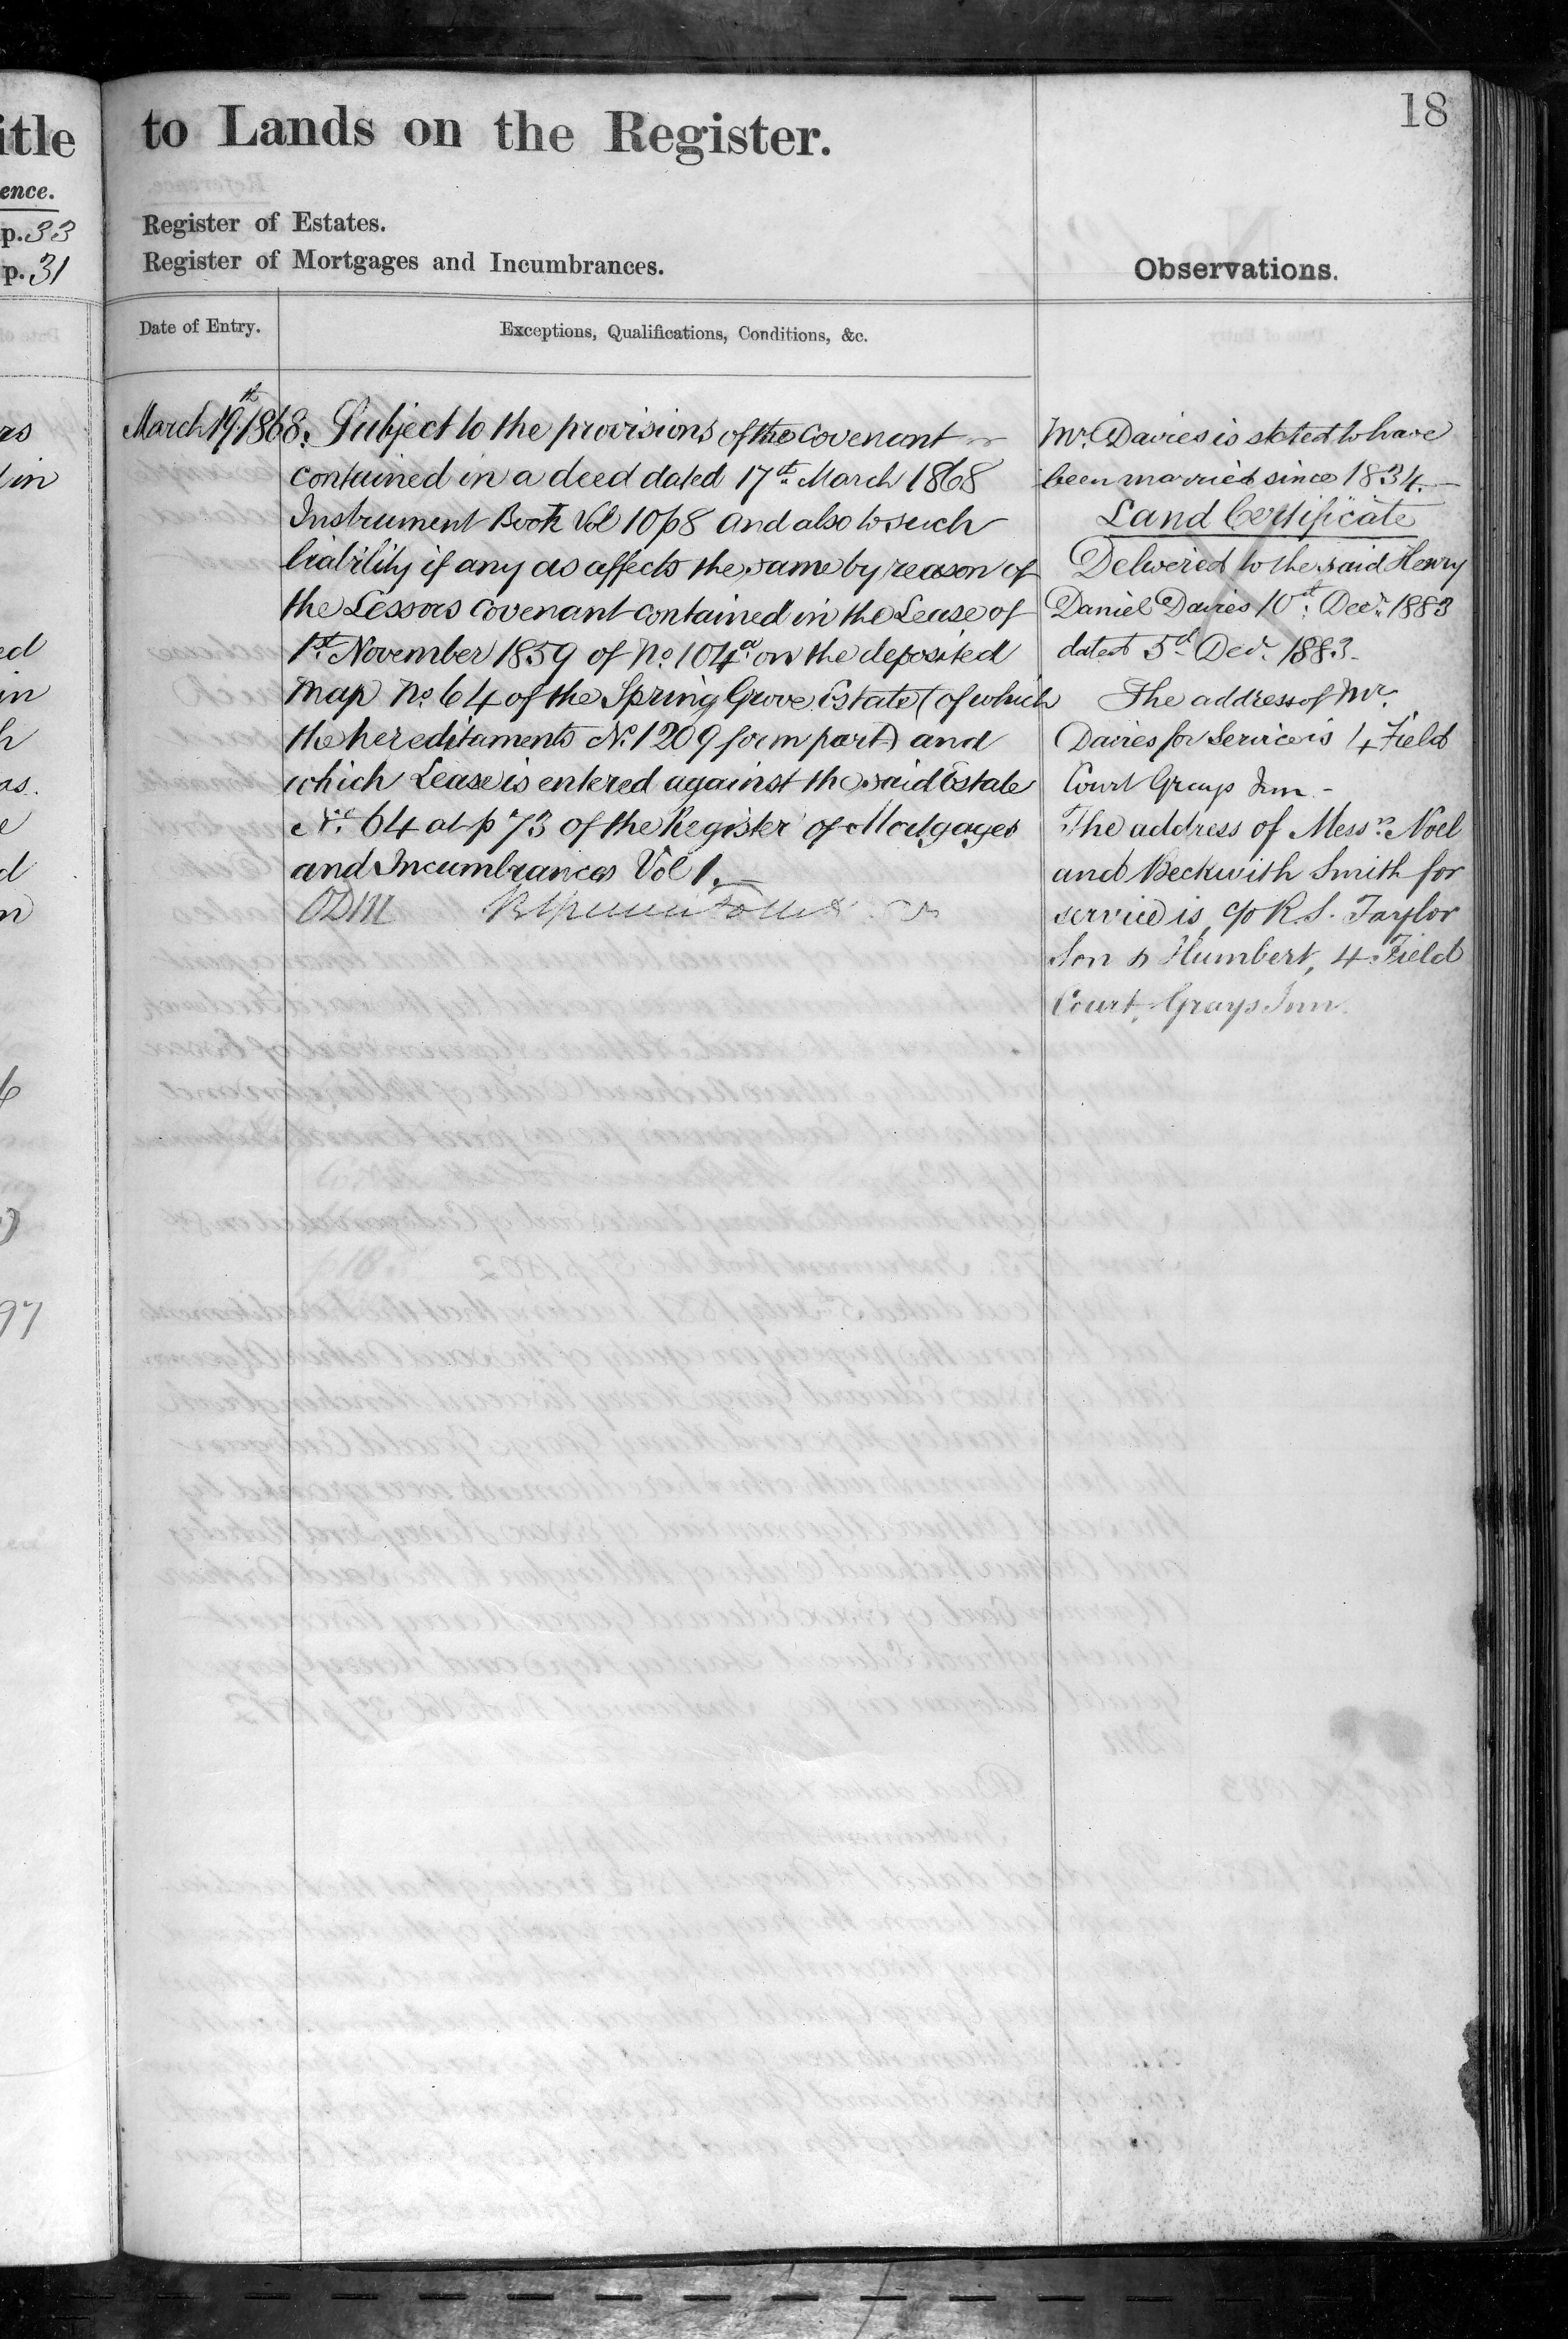 18
to Lands on the Register.
Register of Estates.
Register of Mortgages and Incumbrances.
Observations.
Date of Entry.
Exceptions, Qualifications, Conditions, &c.
March 19th 1868. Subject to the provisions of the Covenant
contained in a deed dated 17th March 1868
Instrument Book Vol 10 p 8 and also to such
liability if any as affects the same by reason of
the Lessors covenant contained in the Lease of
1st November 1859 of No. 104a on the deposited
map No. 64 of the Spring Grove Estate (of which
the hereditaments No. 1209 form part) and
which Lease is entered against the said Estate
No. 64 at p 73 of the Register of Mortgages
and Incumbrances Vol 1.
Mr. Davies is stated to have
been married since 1834.
Land Certificate
Delivered to the said Henry
Daniel Davies 10th Decr. 1883
dated 5th Decr. 1883.
The address of Mr.
Davies for Service is 4 Field
Court Grays Inn.-
The address of Messrs. Noel
and Beckwith Smith for
service is, c/o R.S. Taylor
Son & Humbert, 4 Field
Court, Grays Inn.
itle
ence.
p. 33
p. 31
in
ed
in
h
as.
e
d
n
97